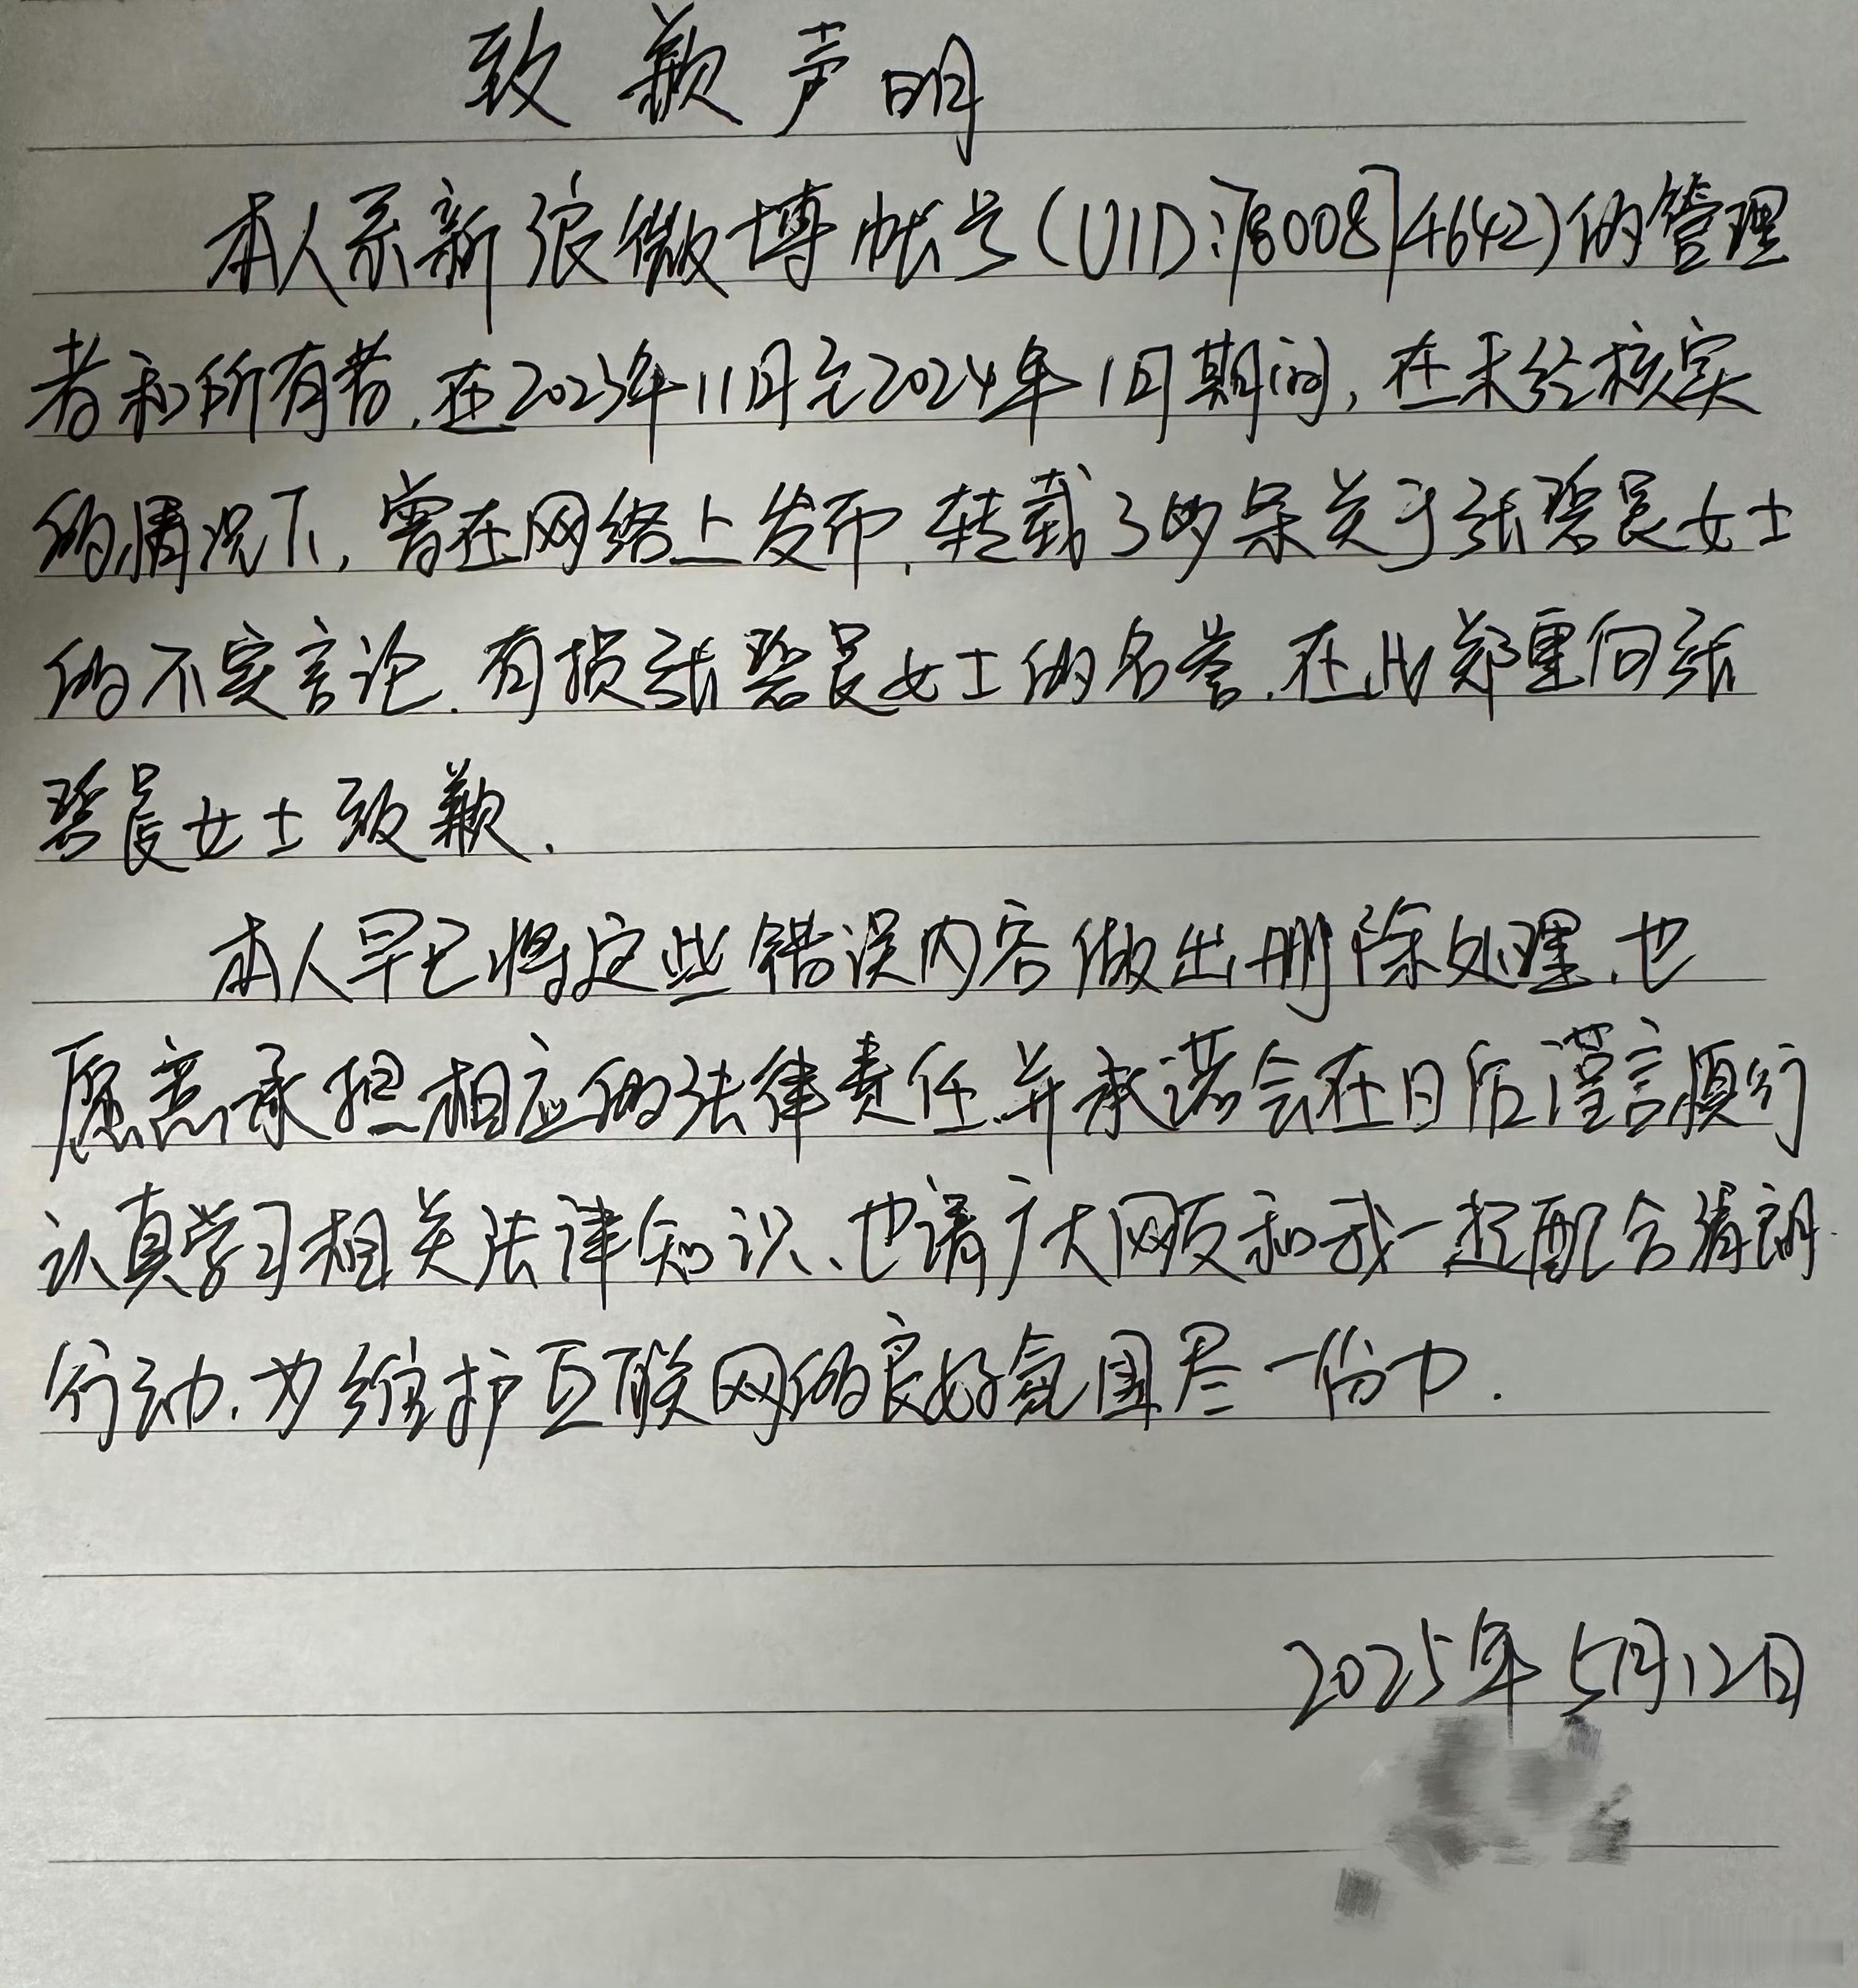 致歉声明
本人系新浪微博帐号(UID:7800874642)的管理
者和所有者,在2023年11月至2024年1月期间,在未经核实
的情况下,曾在网络上发布,转载了两条关于张碧晨女士
的不实言论.有损张碧晨女士的名誉.在此郑重向张
碧晨女士致歉.
本人早已将这些错误内容做出删除处理、也
愿意承担相应的法律责任.并承诺会在日后谨言慎行
认真学习相关法律知识、也请广大网友和我一起配合清朗
行动.为维护互联网的良好氛围尽一份力.
2025年5月12日